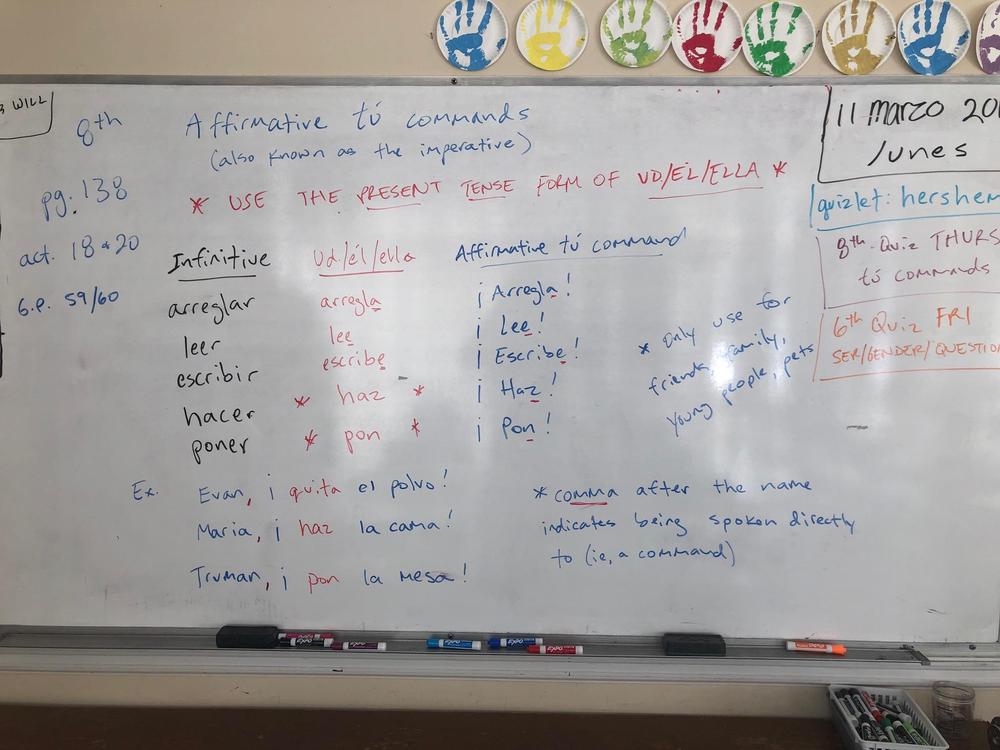 WILL
8th
Affirmative tú commands
(also known as the imperative)
pg. 138
* USE THE PRESENT TENSE FORM OF UD/ÉL/ELLA *
act. 18 & 20
G.P. 59/60
Infinitive Ud./él/ella Affirmative tú command
arreglar arregla ¡Arregla!
leer lee ¡Lee!
escribir escribe ¡Escribe!
hacer * haz * ¡Haz!
poner * pon * ¡Pon!
* only use for
friends, family,
young people, pets
Ex. Evan, ¡quita el polvo!
Maria, ¡haz la cama!
Truman, ¡pon la mesa!
* comma after the name
indicates being spoken directly
to (ie, a command)
11 marzo 20
lunes
quizlet: hershem
8th Quiz THURS
tú commands
6th Quiz FRI
SER/GENDER/QUESTION